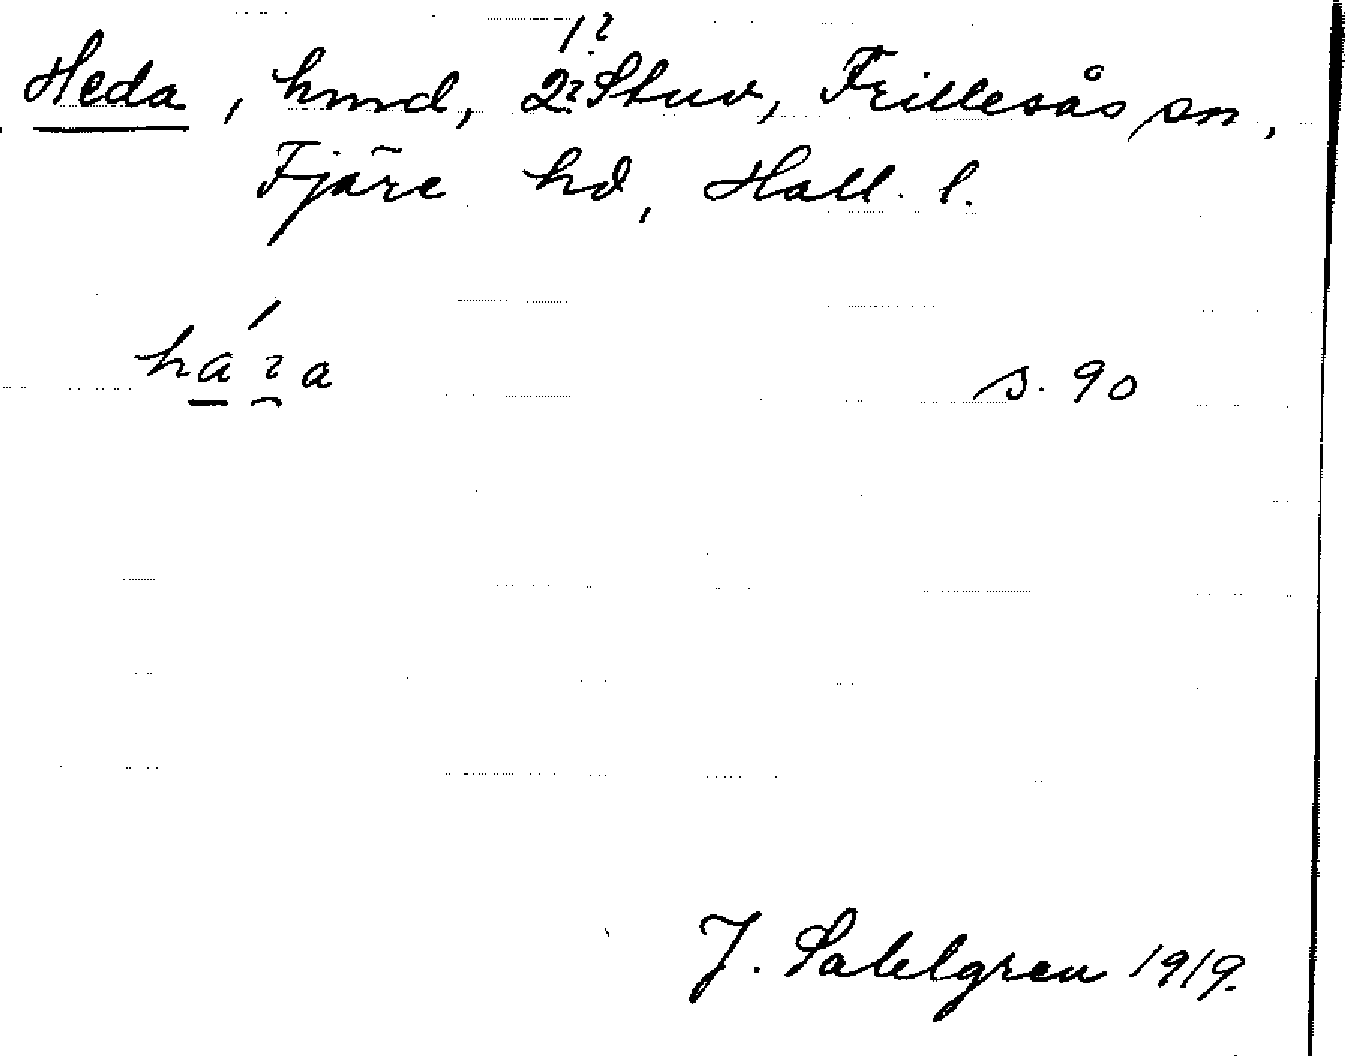 1?
Heda, hmd, 2? Stuv, Frillesås sn,
Fjäre hd, Hall. l.
s. 90
J. Sahlgren 1919.